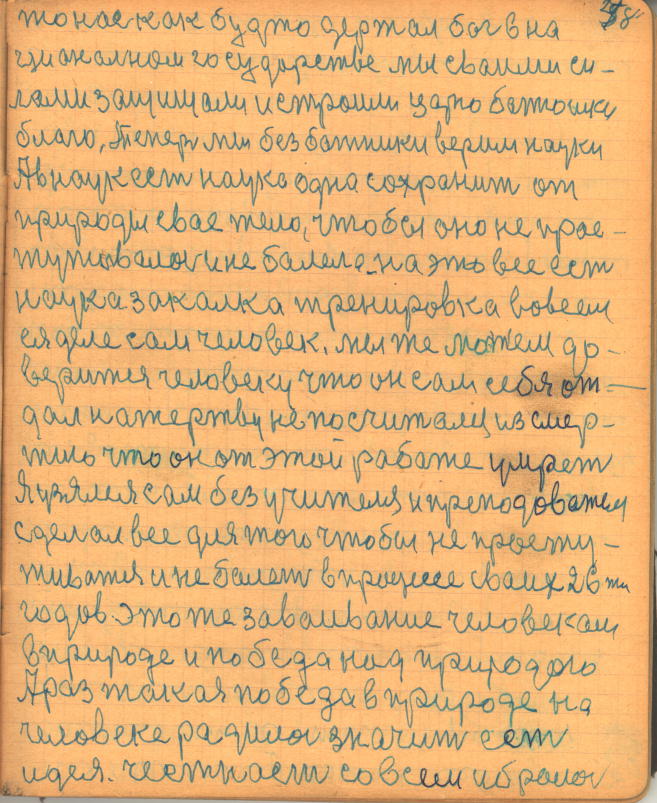 58
то нас как будто держал бог в на
ционалном государстве мы сваими си-
лами защищали и строили царю батюшки
благо, Тепер мы без батюшки верим науки
А в наук ест наука одна сохранит от
природы свае тело, чтобы оно не прос-
тужовалос и не балело на это все ест
наука закалка тренировка во всем
ся деле сам человек. мы же можем до-
верится человеку что он сам себя от-
дал на жертву не посчитали из смер-
тию что он от этой работе умрет
Я узялся сам без учителя и преподователя
сделал все для того чтобы не просту-
живатся и не болет в процессе сваих 26 ти
годов. это же заваивание человекам
в природе и победа над природою
А раз такая победа в природе на
человеке радилос значит ест
идея. честнаст со всем и бралос